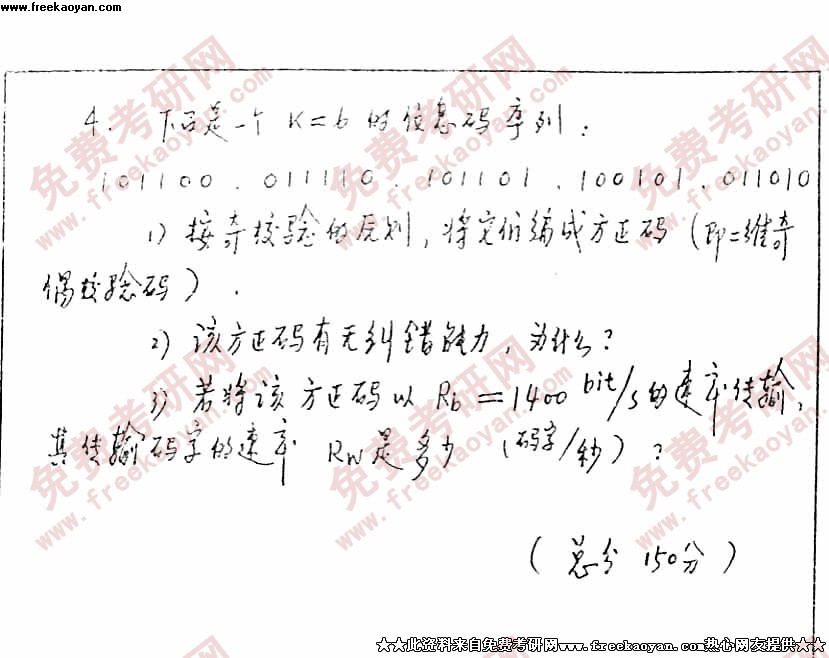 www.freekaoyan.com
4. 下面是一个 K=6 的信息码序列:
101100 . 011110 . 101101 . 100101 . 011010
1) 按奇校验的原则, 将它们编成方正码 (即二维奇
偶校验码) .
2) 该方正码有无纠错能力, 为什么?
3) 若将该方正码以 Rb = 1400 bit/s 的速率传输,
其传输码字的速率 RW 是多少 (码字/秒) ?
( 总分 150分 )
★★此资料来自免费考研网www.freekaoyan.com热心网友提供★★